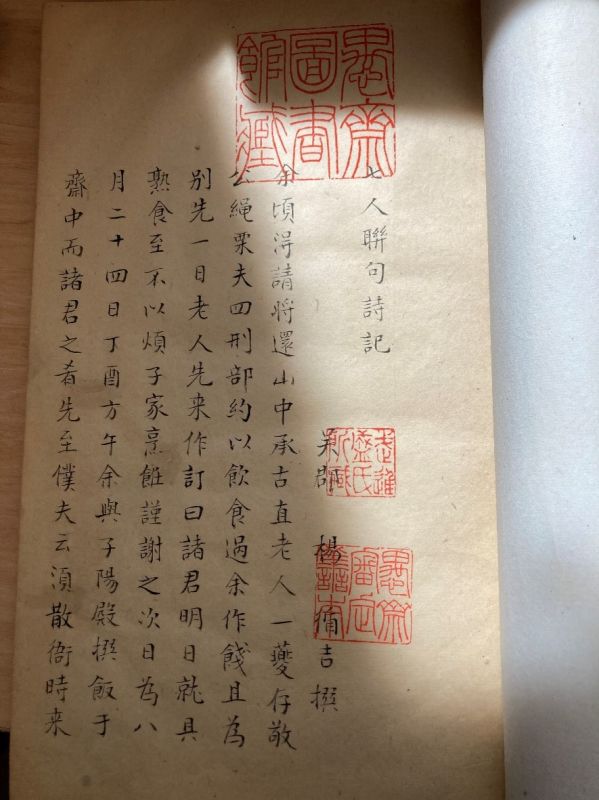 愚齋
圖書
館藏
七人聯句詩記
武進
盛氏
所藏
愚齋
審定
善本
吳郡 楊循吉撰
余頃淂請將還山中承古直老人一夔存敬
公繩栗夫四刑部約以飲食過余作餞且為
別先一日老人先来作訂曰諸君明日就具
熟食至不以煩子家烹飪謹謝之次日為八
月二十四日丁酉方午余與子陽殿撰飯于
齋中而諸君之肴先至僕夫云湏散衙時来